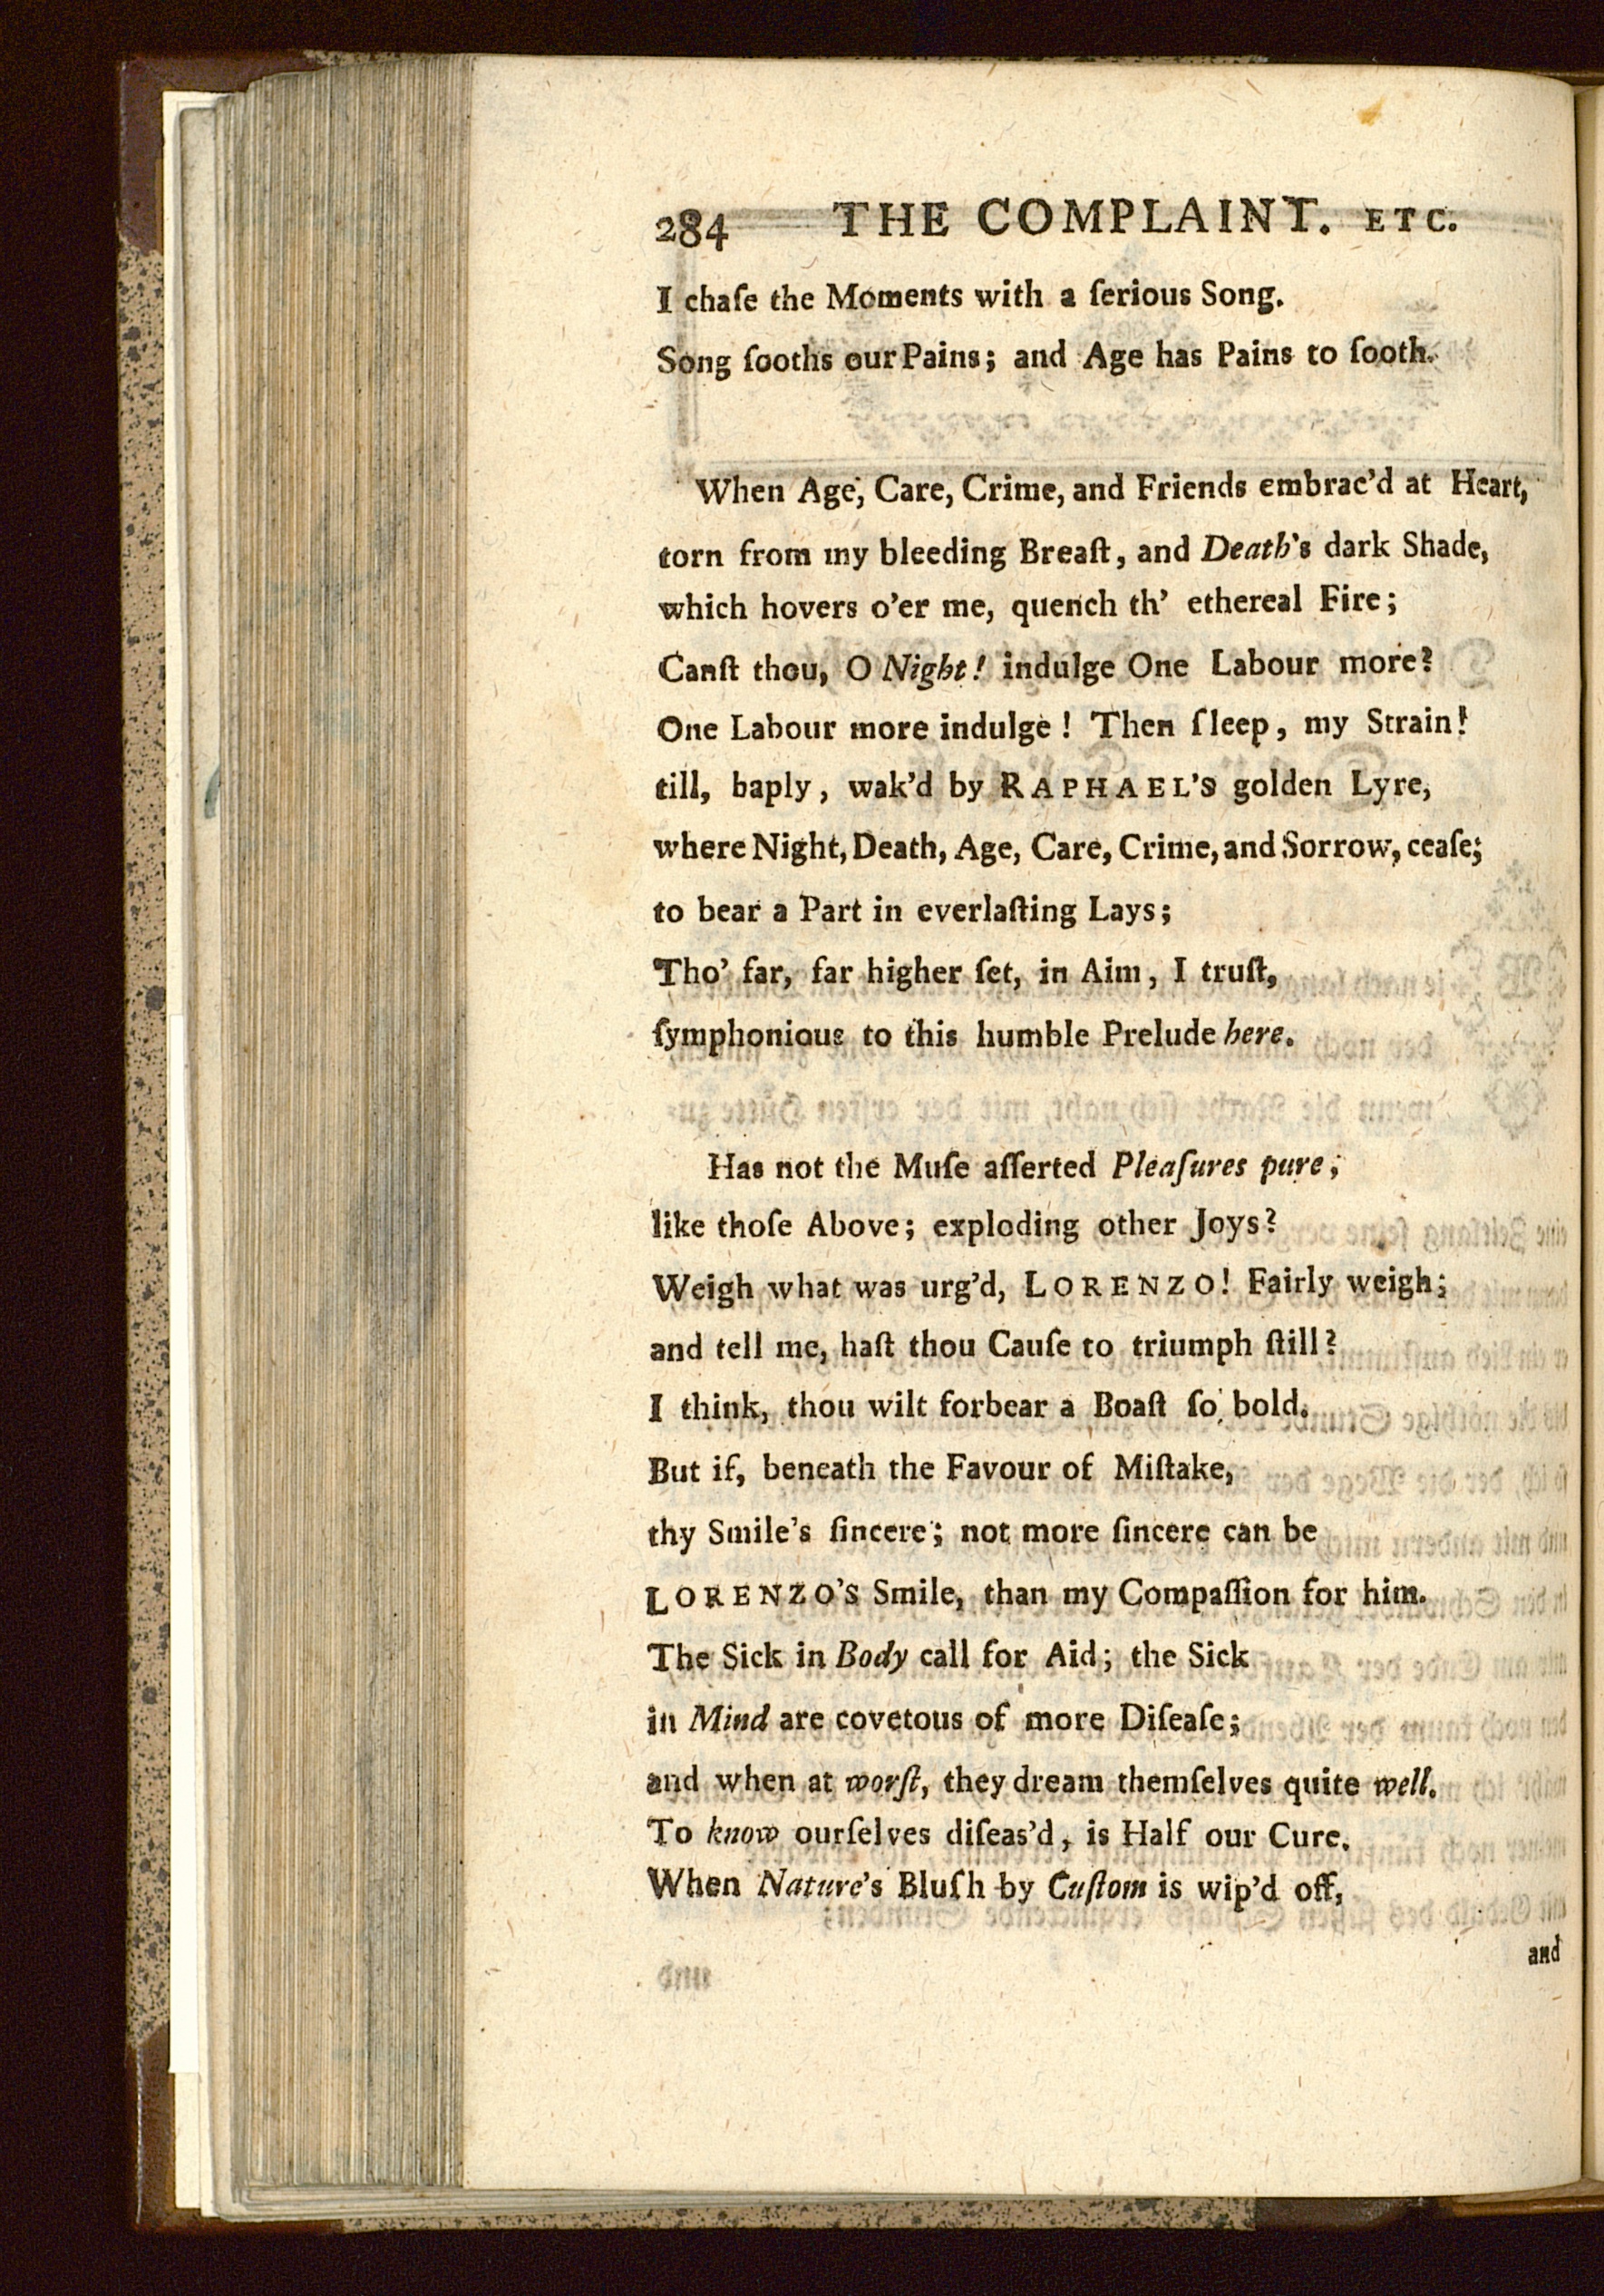 284 THE COMPLAINT. ETC.
I chaſe the Moments with a ſerious Song.
Song ſooths our Pains; and Age has Pains to ſooth.
When Age, Care, Crime, and Friends embrac'd at Heart,
torn from my bleeding Breaſt, and Death's dark Shade,
which hovers o'er me, quench th' ethereal Fire;
Canſt thou, O Night! indulge One Labour more?
One Labour more indulge! Then ſleep, my Strain!
till, baply, wak'd by RAPHAEL'S golden Lyre,
where Night, Death, Age, Care, Crime, and Sorrow, ceaſe;
to bear a Part in everlaſting Lays;
Tho' far, far higher ſet, in Aim, I truſt,
ſymphonious to this humble Prelude here.
Has not the Muſe aſſerted Pleaſures pure,
like thoſe Above; exploding other Joys?
Weigh what was urg'd, LORENZO! Fairly weigh;
and tell me, haſt thou Cauſe to triumph ſtill?
I think, thou wilt forbear a Boaſt ſo bold.
But if, beneath the Favour of Miſtake,
thy Smile's ſincere; not more ſincere can be
LORENZO'S Smile, than my Compaſſion for him.
The Sick in Body call for Aid; the Sick
in Mind are covetous of more Diſeaſe;
and when at worſt, they dream themſelves quite well.
To know ourſelves diſeas'd, is Half our Cure.
When Nature's Bluſh by Cuſtom is wip'd off,
and